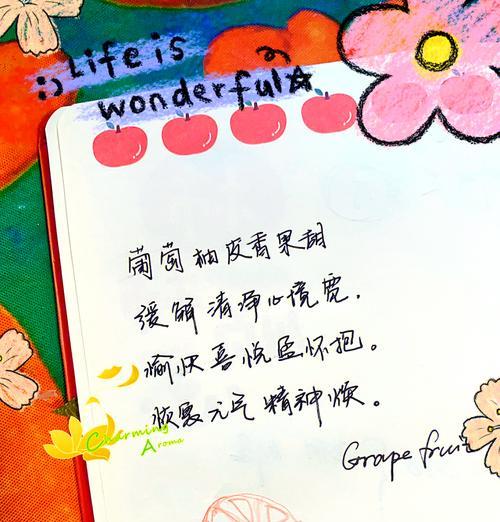 :) Life is
wonderful☆
葡萄柚皮香果甜
缓解清净心境宽,
愉快喜悦盈怀抱。
恢复元气精神焕。
Charming
Aroma
Grape fruit